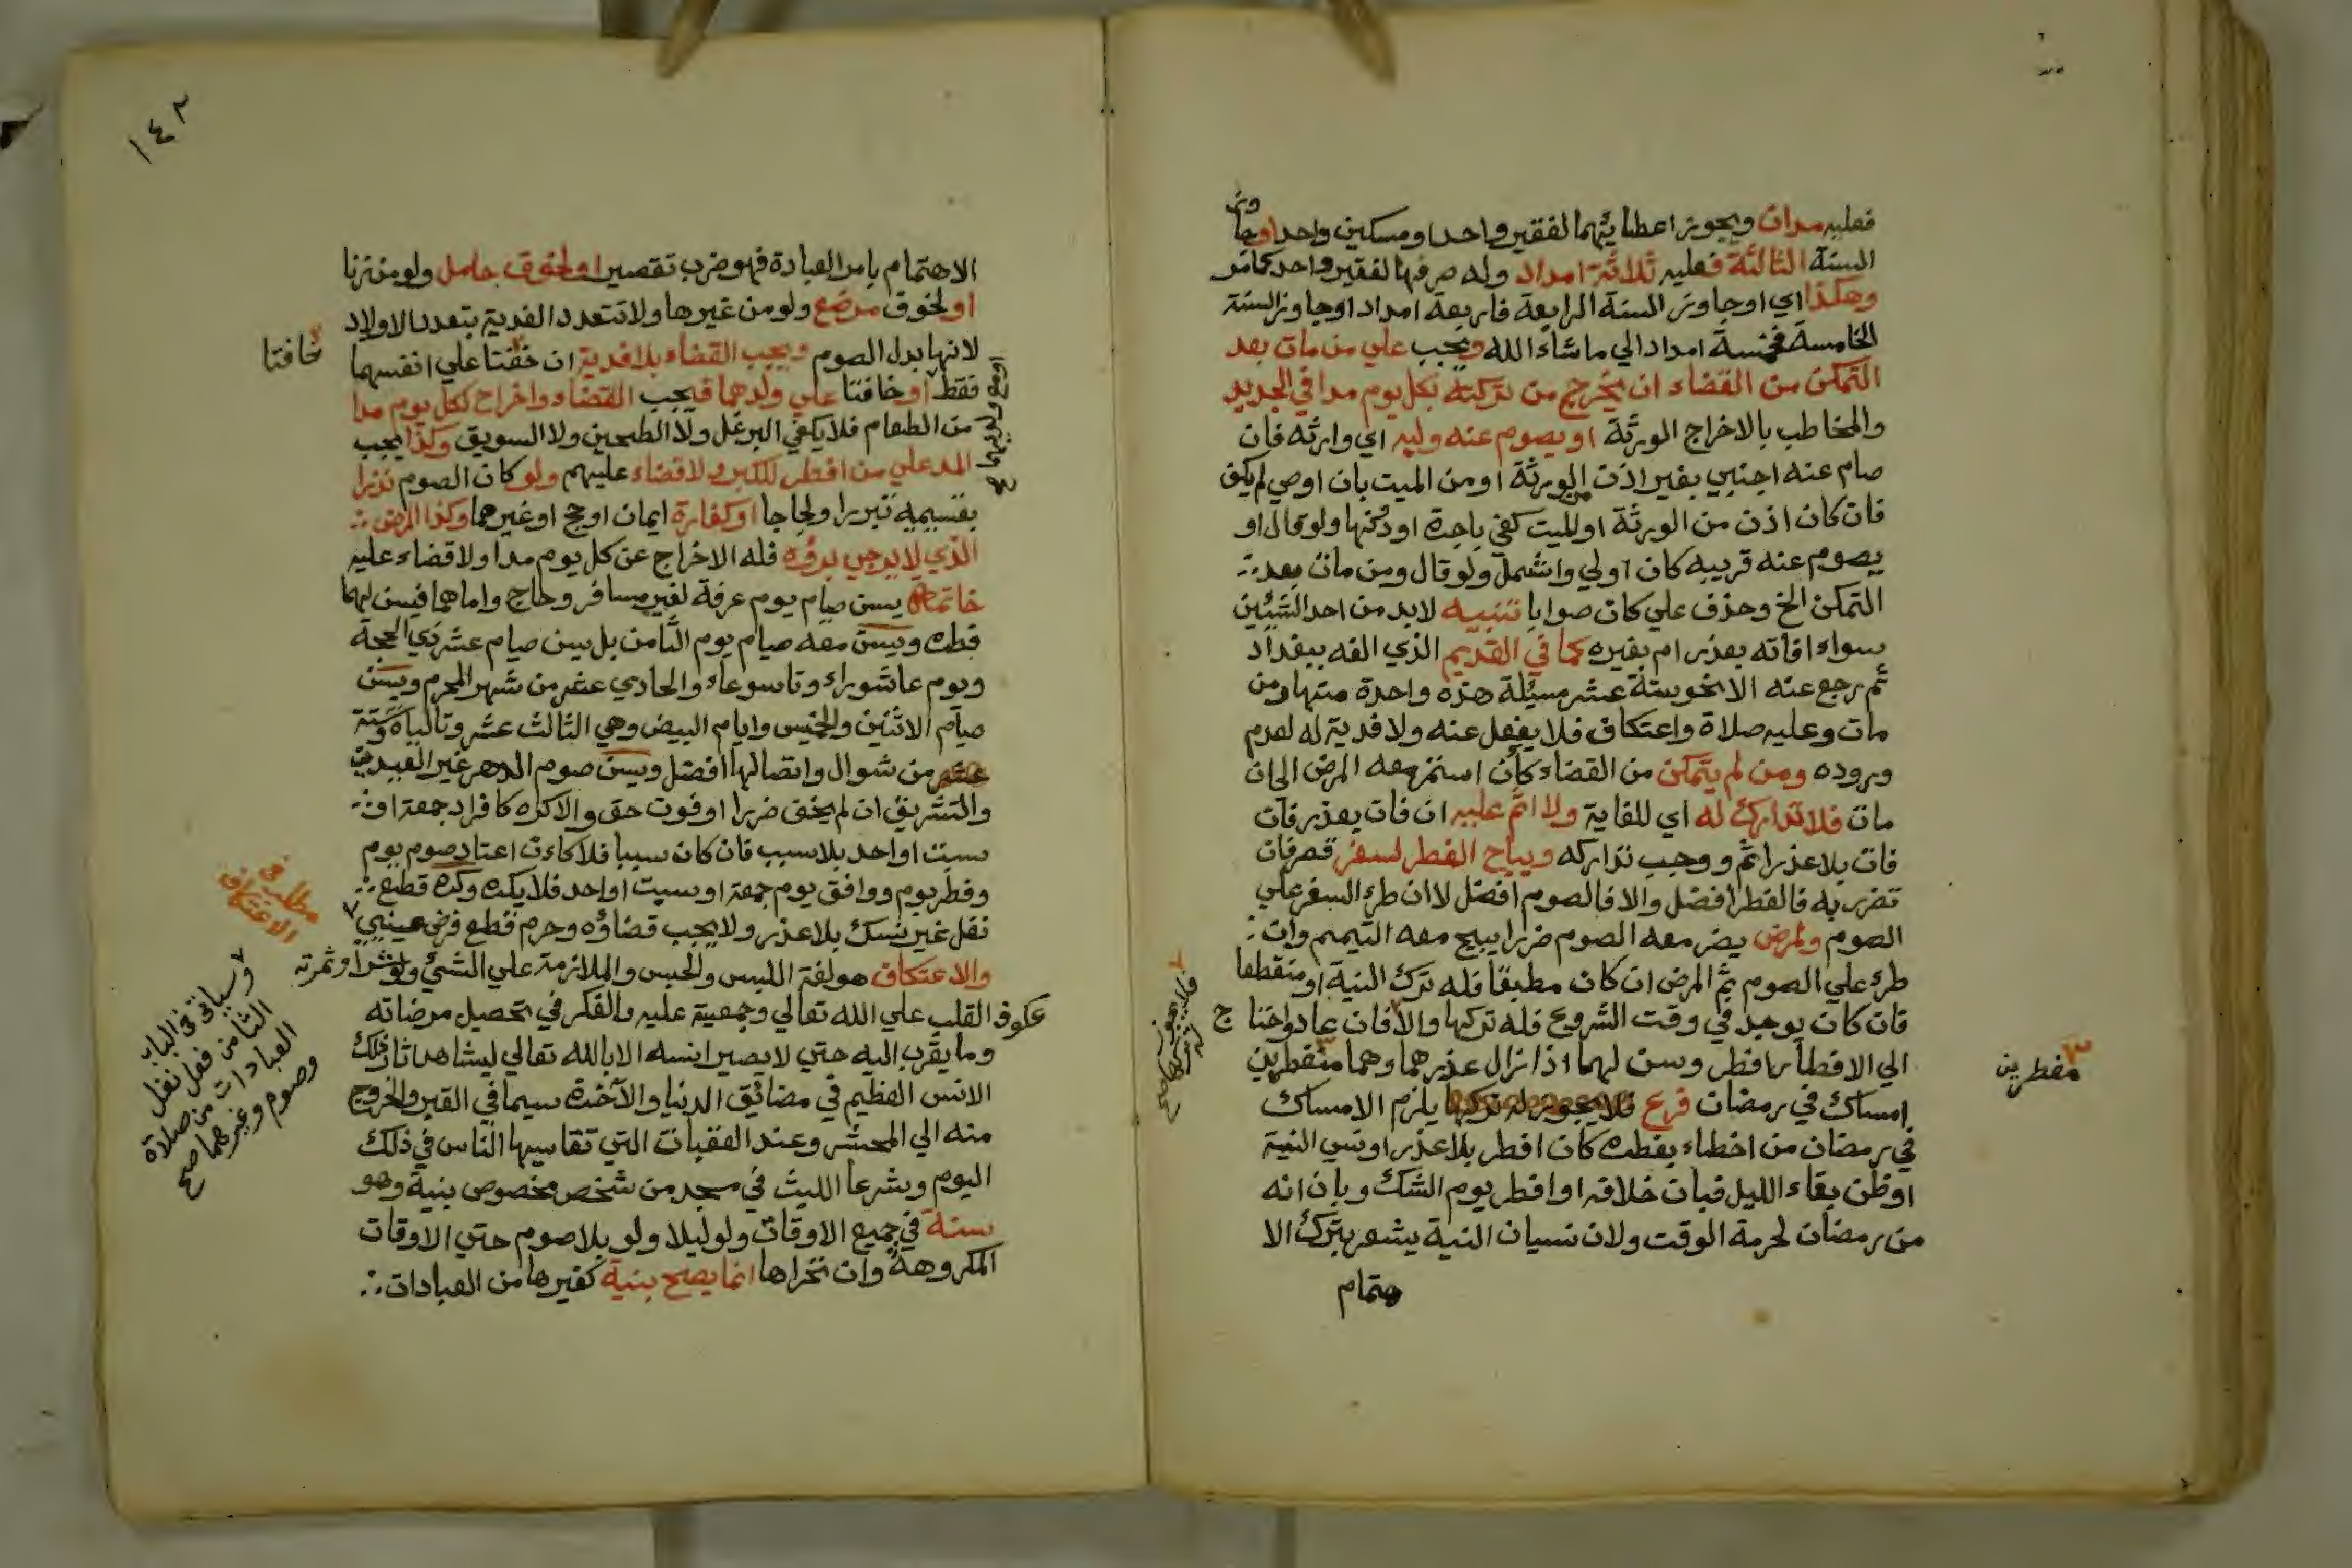 فعليه مدان ويجوز اعطائهما لفقير واحد او مسكين واحد او جاوز
السنة الثالثة فعليه ثلاثة امداد وله صرفها لفقير واحد كما مر
وهكذا اي او جاوز السنة الرابعة فاربعة امداد او جاوز السنة
الخامسة فخمسة امداد الي ما شاء الله ويجب علي من مات بعد
التمكن من القضاء ان يخرج من تركته بكل يوم مدا في الجديد
والمخاطب بالاخراج الورثة او يصوم عنه وليه اي وارثه فان
صام عنه اجنبي بغير اذن من الورثة او من الميت بان اوصي لم يكف
فان كان اذن من الورثة او للميت كفي باجرة او دونها ولو قال او
يصوم عنه قريبه كان اولي واشمل ولو قال ومن مات بعد
التمكن الخ وحذف علي كان صوابا تنبيه لابد من احد الشيئين
سواء افاته بعذر ام بغيره كما في القديم الذي الفه ببغداد
ثم رجع عنه الا نحو ستة عشر مسئلة هذه واحدة منها ومن
مات وعليه صلاة واعتكاف فلا يفعل عنه ولا فدية له لعدم
وروده ومن لم يتمكن من القضاء كأن استمر معه المرض الي ان
مات فلا تدارك له اي للفاية ولا اثم عليه ان فات بعذر فان
فات بلا عذر اثم ووجب تداركه ويباح الفطر لسفر قصر فان
تضرر به فالفطر افضل والا فالصوم افضل لا ان طرء السفر علي
الصوم ولمرض يضر معه الصوم ضررا يبيح معه التيمم وان
طرء علي الصوم ثم المرض ان كان مطبقا فله ترك النية او منقطعا
فان كان يوجد في وقت الشروع فله تركها والا فان عاد واحتاج
الي الافطار افطر وسن لهما اذا زال عذرهما وهما منفطرين
امساك في رمضان فرع فلا يجوز له تركها يلزم الامساك
في رمضان من اخطاء بفطره كان افطر بلا عذر او نسي النية
او ظن بقاء الليل فبان خلافه او افطر يوم الشك وبان انه
من رمضان لحرمة الوقت ولان نسيان النية يشعر بترك الا
هتمام
مفطرين
١٤٢
الاهتمام بامر العبادة فهو ضرب تقصير او لخوف حامل ولو من زنا
او لخوف مرضع ولو من غيرها ولا تتعدد الفدية بتعدد الاولاد
لانها بدل الصوم ويجب القضاء بلا فدية ان خفتا علي انفسهما
خافتا
فقط او خافتا علي ولدهما فيجب القضاء واخراج لكل يوم مدا
من الطعام فلا يكفي البرغل ولا الطحين ولا السويق وكذا يجب
المد علي من افطر للكبر ولا قضاء عليهم ولو كان الصوم نذرا
بقسيميه تبررا ولجاجا او كفارة ايمان او حج او غيرهما وكذا المرض
الذي لا يرجي برؤه فله الاخراج عن كل يوم مدا ولا قضاء عليه
خاتمة يسن صيام يوم عرفة لغير مسافر وحاج واما هما فيسن لهما
فطره ويسن معه صيام يوم الثامن بل يسن صيام عشر ذي الحجة
ويوم عاشوراء وتاسوعاء والحادي عشر من شهر المحرم ويسن
صيام الاثنين والخميس وايام البيض وهي الثالث عشر وتالياه وستة
عشر من شوال واتصالها افضل ويسن صوم الدهر غير العيدين
والتشريق ان لم يخف ضررا او فوت حق والا كره كافراد جمعة او
سبت او احد بلا سبب فان كان سببا فلا كاءن اعتاد صوم يوم
وفطر يوم ووافق يوم جمعة او سبت او احد فلا يكره وكره قطع
نفل غير نسك بلا عذر ولا يجب قضاؤه وحرم قطع فرض عيني
مطلب في
الاعتكاف
والاعتكاف هو لغة اللبس والحبس والملازمة علي الشئ ولو شرا وثمرته
عكوف القلب علي الله تعالي وجمعية عليه والفكر في تحصيل مرضاته
وما يقرب اليه حتي لا يصير انسه الا بالله تعالي ليشاهد اثار ذلك
الانس العظيم في مضائق الدنيا والآخرة سيما في القبر والخروج
منه الي المحشر وعند العقبات التي تقاسيها الناس في ذلك
اليوم وشرعا اللبث في مسجد من شخص مخصوص بنية وهو
سنة في جميع الاوقات ولو ليلا ولو بلا صوم حتي الاوقات
المكروهة وان تحراها انما يصح بنية كغيرها من العبادات
وسياتي في الباب
الثامن فعل نفل
العبادات من صلاة
وصوم وغيرهما صح